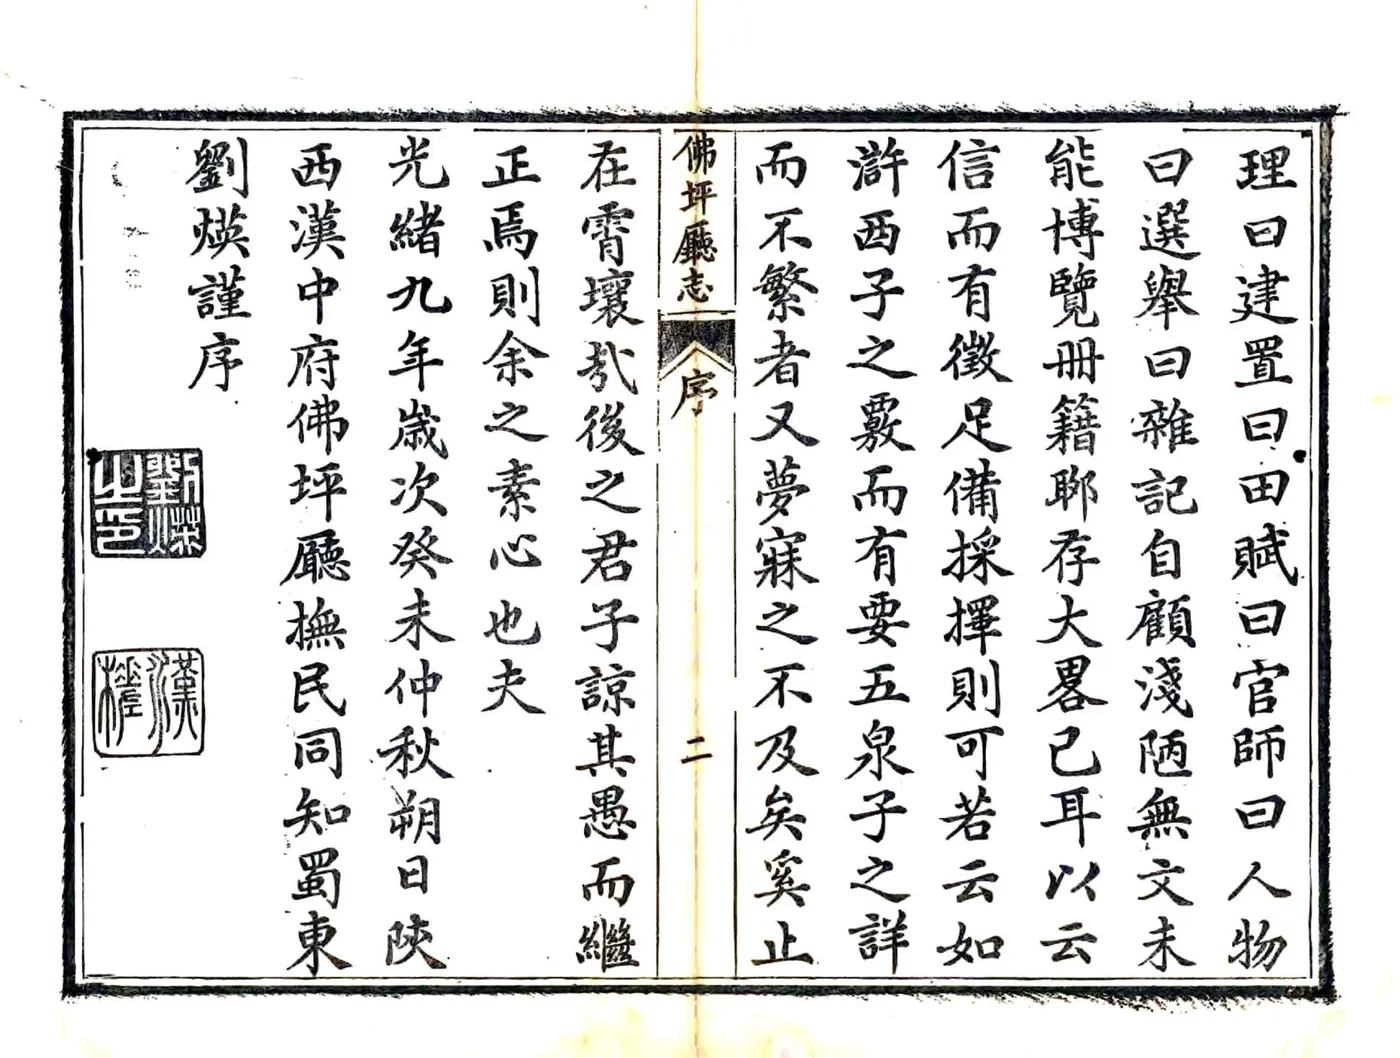 理曰建置曰田賦曰官師曰人物
曰選舉曰雜記自顧淺陋無文未
能博覽冊籍聊存大畧已耳以云
信而有徵足備採擇則可若云如
滸西子之覈而有要五泉子之詳
而不繁者又夢寐之不及矣奚止
佛坪廳志
序
二
在霄壤哉後之君子諒其愚而繼
正焉則余之素心也夫
光緒九年歲次癸未仲秋朔日陝
西漢中府佛坪廳撫民同知蜀東
劉煐謹序
劉煐之印
漢槎